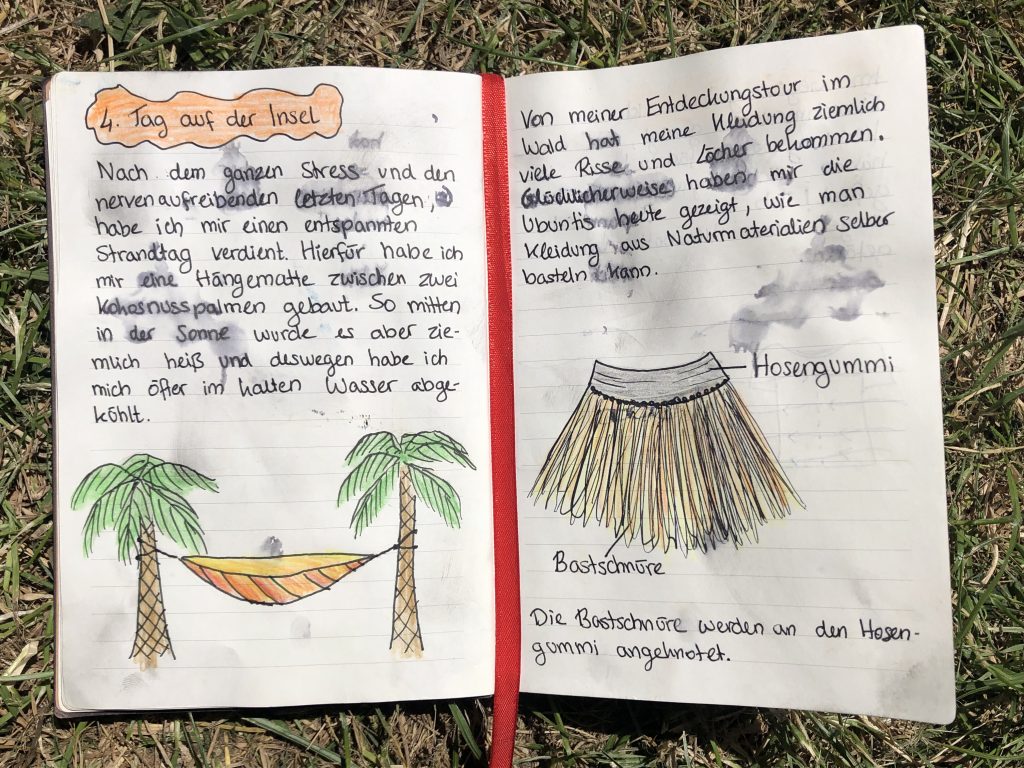 4. Tag auf der Insel
Nach dem ganzen Stress und den
nervenaufreibenden letzten Tagen,
habe ich mir einen entspannten
Strandtag verdient. Hierfür habe ich
mir eine Hängematte zwischen zwei
Kokosnusspalmen gebaut. So mitten
in der Sonne wurde es aber zie-
mlich heiß und deswegen habe ich
mich öfter im kalten Wasser abge-
kühlt.
Von meiner Entdeckungstour im
Wald hat meine Kleidung ziemlich
viele Risse und Löcher bekommen.
Glücklicherweise haben mir die
Ubuntis heute gezeigt, wie man
Kleidung aus Naturmaterialien selber
basteln kann.
Hosengummi
Bastschnüre
Die Bastschnüre werden an den Hosen-
gummi angeknotet.